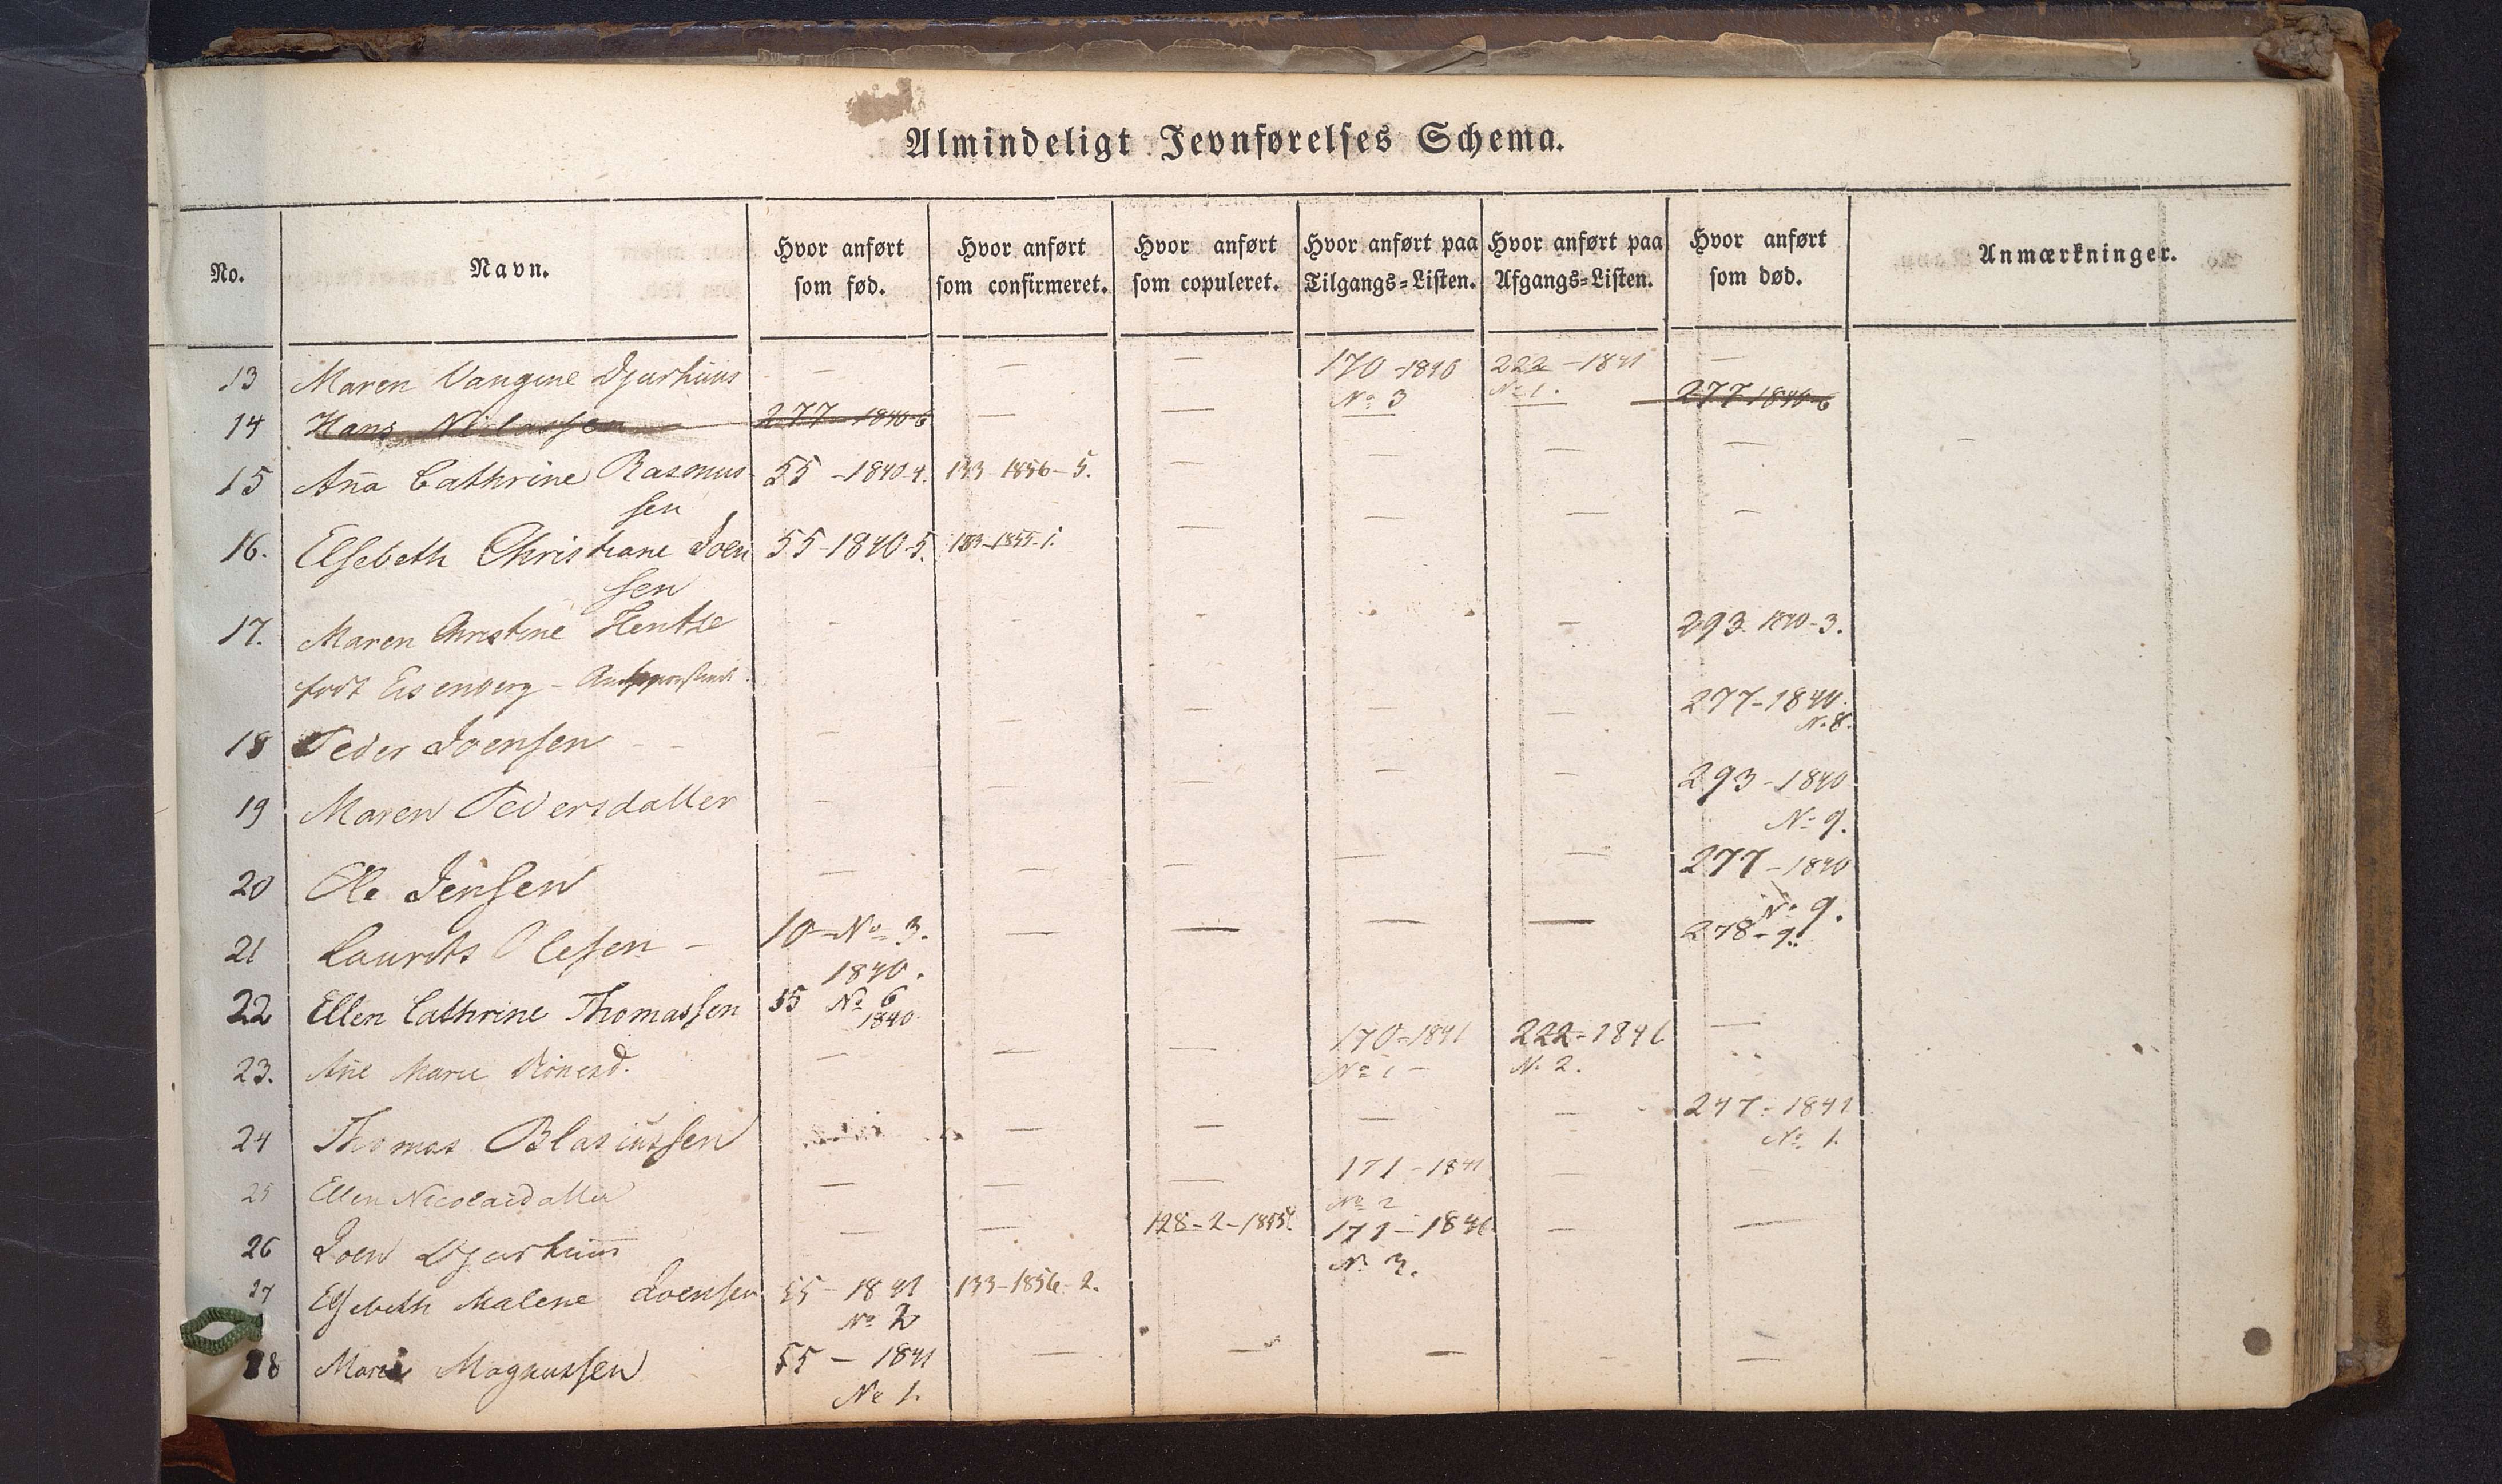 Almindeligt Jevnførelses Schema.
No. Navn. Hvor anført som fød. Hvor anført som confirmeret. Hvor anført som copuleret. Hvor anført paa Tilgangs=Listen. Hvor anført paa Afgangs=Listen. Hvor anført som død. Anmærkninger.
13 Maren Vangine Djurhuus — — — 170-1840 222-1841 —
No 3 No 1.
14 Hans Niclassen 277-1840-6 — — 277-1840-6
15 Aña Cathrine Rasmus- 55-1840-4. 133-1856-5. — — — —
sen
16. Elsebeth Christiane Joen 55-1840-5. 183-1855-1. — — — —
sen
17. Maren Christine Hentze - - - - - 293-1840-3.
født Eisenberg -
18 Peder Joensen - - - — — — — — 277-1840.
No 8.
19 Maren Pedersdatter - — — — — 293-1840
No 9.
20 Ole Jensen — — — — — 277-1840
No 9.
21 Laurits Olesen - 10-No 3. — — — — 278-9.
1840.
22 Ellen Cathrine Thomassen 55 No 6
1840
23. Añe Marie — — — 170-1841 222-1841 —
No 1 - No 2.
24 Thomas Blasiussen — — — — 247-1841
No 1.
25 Ellen Nicolaisdatter — — — 171-1841 —
No 2
26 Joen Djurhuus — — 128-2-1855 171-1841 — —
No 3.
27 Elsebeth Malene Joensen 55-1841 133-1856-2.
No 2
28 Marie Magnussen 55 - 1841 — — — - —
No 1.